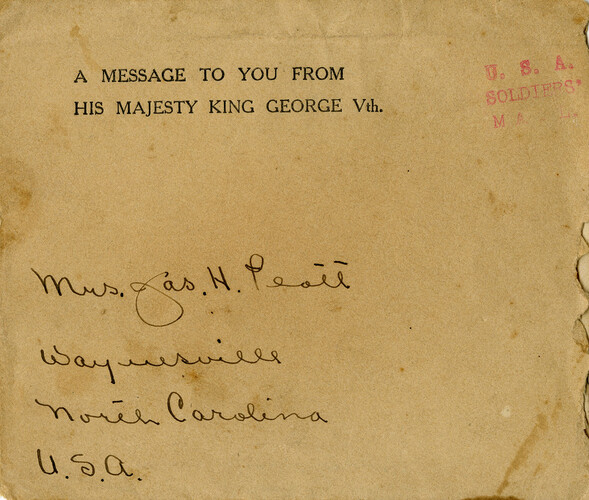 A MESSAGE TO YOU FROM
HIS MAJESTY KING GEORGE Vth.
U. S. A.
SOLDIERS'
Mrs. Jas. H. Peott
Waynesville
North Carolina
U.S.A.